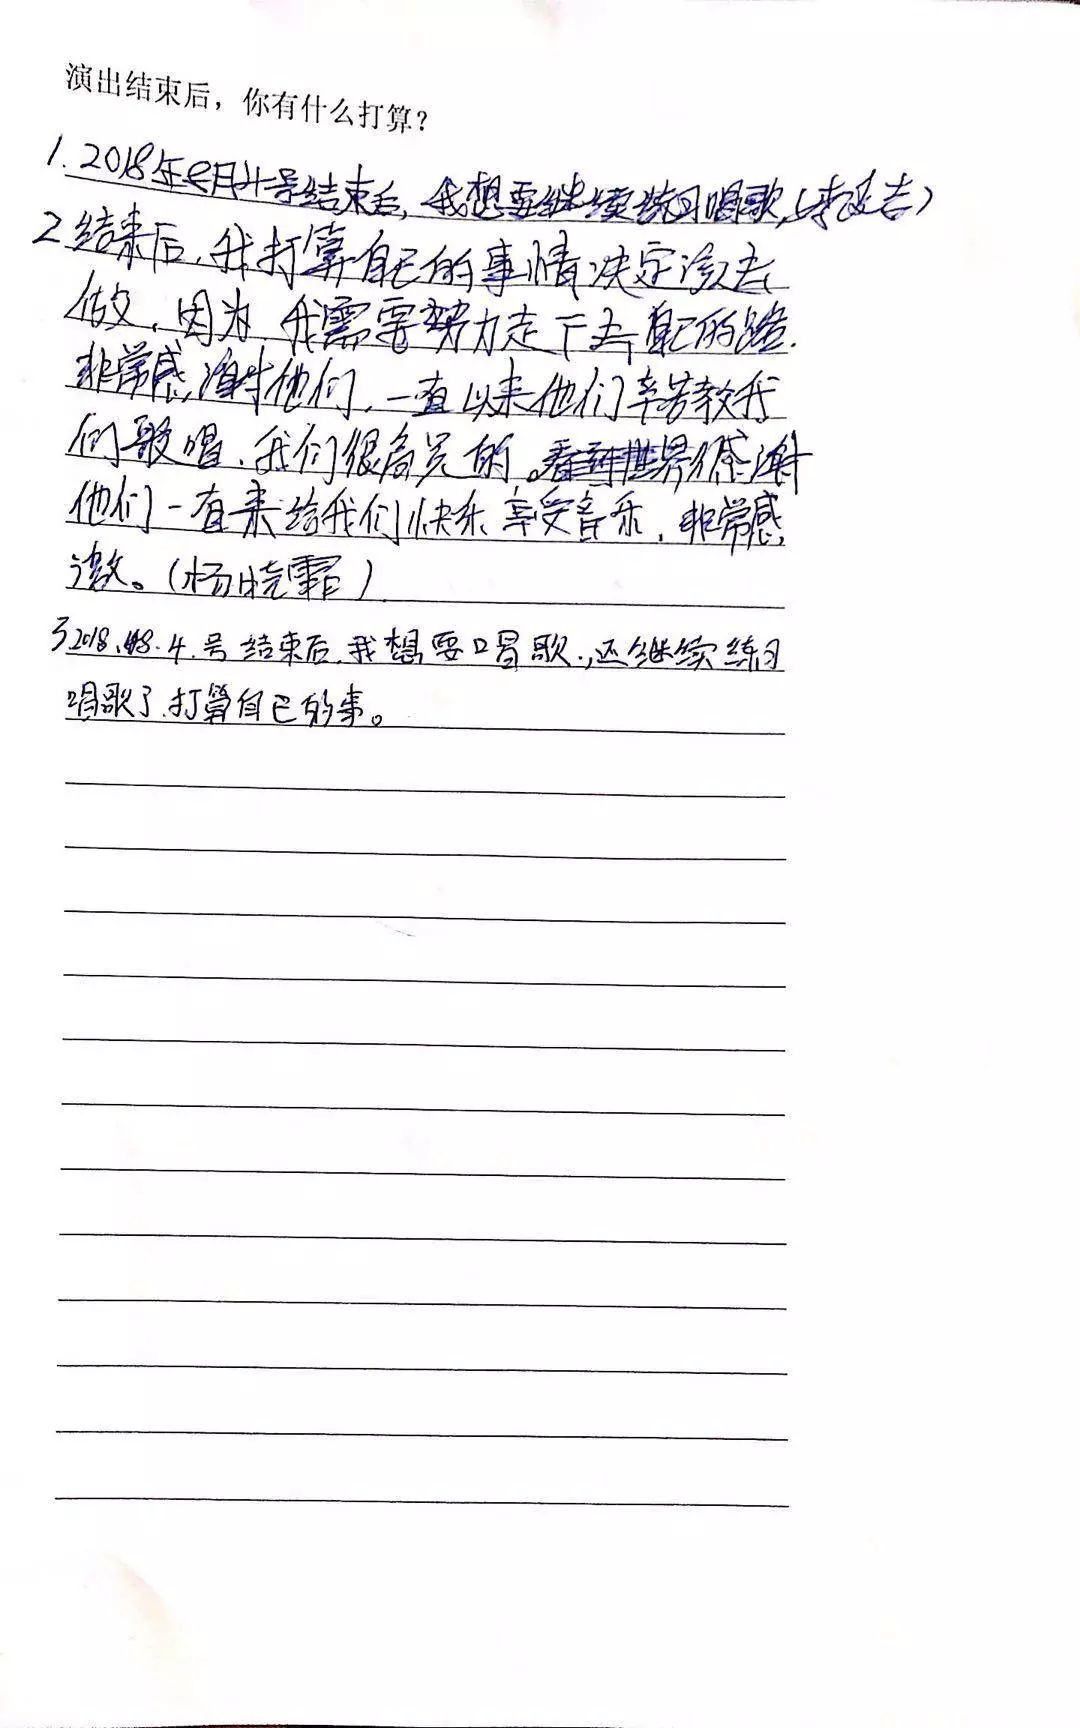 演出结束后，你有什么打算？
1. 2018年8月4号结束后，我想要继续练习唱歌，（李延吉）
2 结束后，我打算自己的事情决定该去
做，因为，我需要努力走下去自己的路.
非常感谢他们，一直以来他们辛苦教我
们歌唱，我们很高兴的。看到世界很感谢
他们一直来给我们快乐 享受音乐，非常感
激。（杨晓霏）
3 2018.8.4.号结束后，我想要唱歌.，还继续练习
唱歌了，打算自己的事。